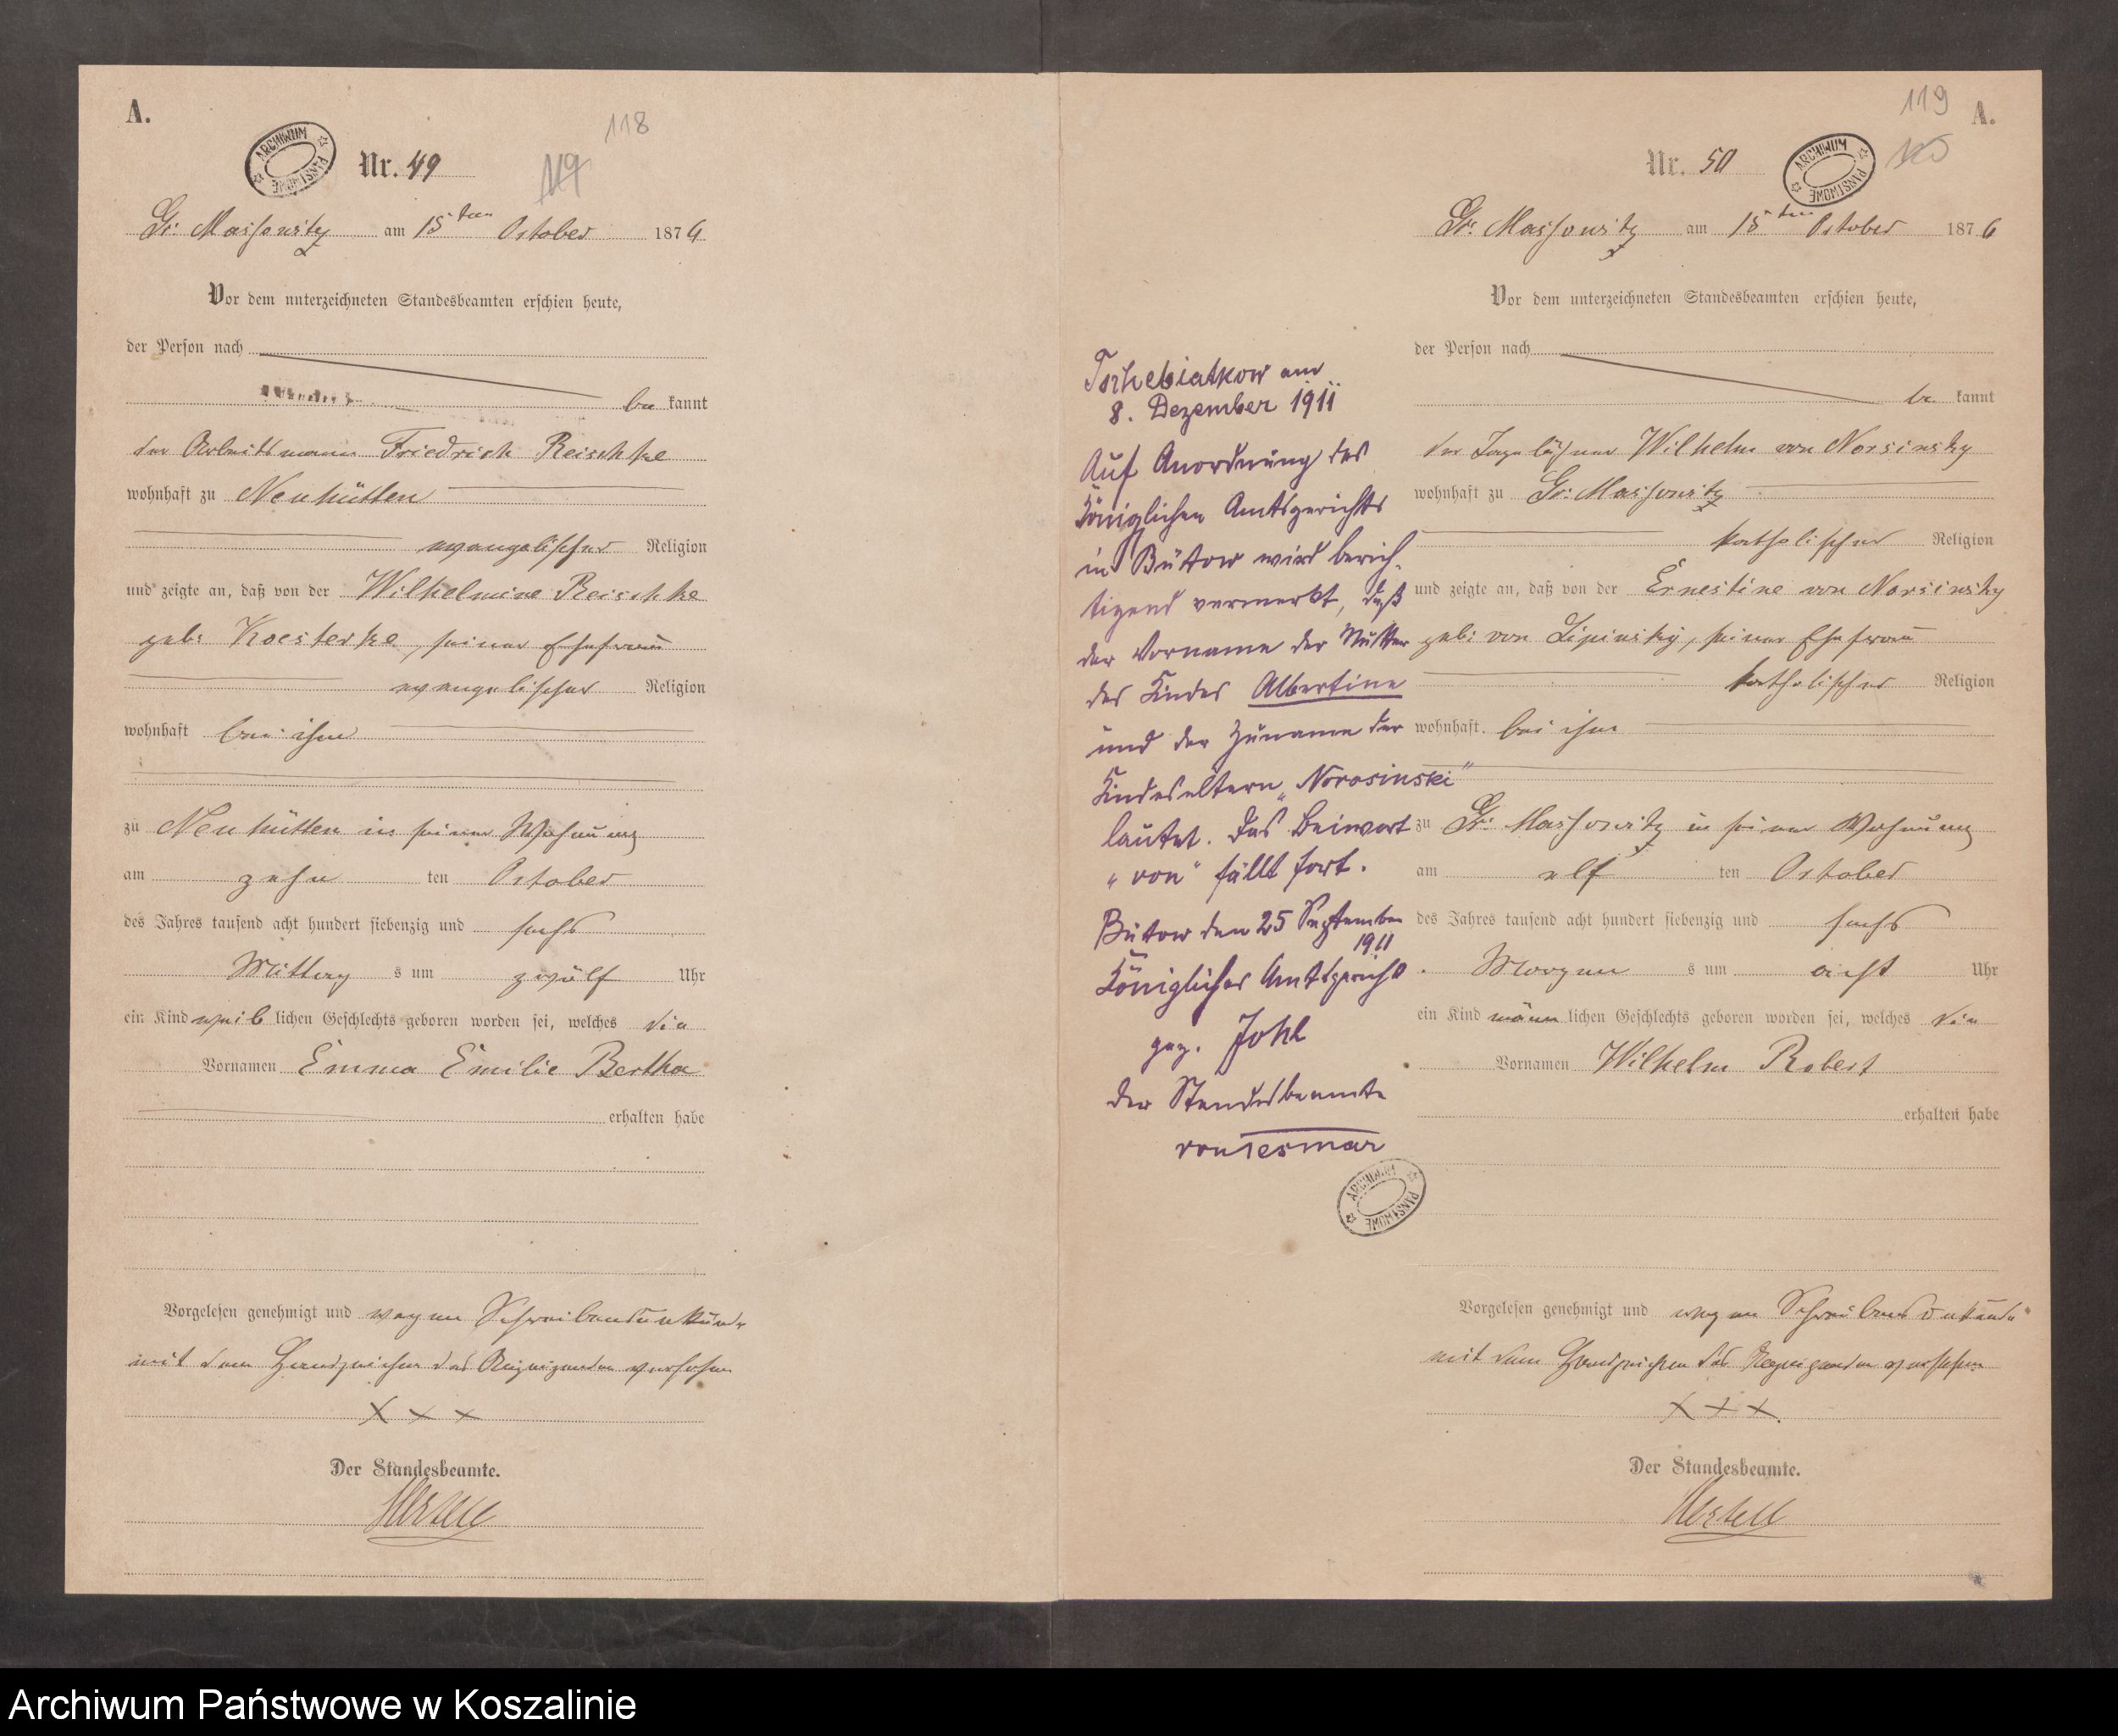 A.
118
ARCHIWUM PAŃSTWOWE
Nr. 49
119
Gr: Massowitz am 15ten October 1876
Vor dem unterzeichneten Standesbeamten erschien heute,
der Person nach
be kannt
der Arbeitsmann Friedrich Reischke
wohnhaft zu Neuhütten
evangelischer Religion
und zeigte an, daß von der Wilhelmine Reischke
geb: Koesterke, seiner Ehefrau
evangelischer Religion
wohnhaft bei ihm
zu Neuhütten in seiner Wohnung
am zehn ten October
des Jahres tausend acht hundert siebenzig und sechs
Mittag s um zwölf Uhr
ein Kind weib lichen Geschlechts geboren worden sei, welches die
Vornamen Emma Emilie Bertha
erhalten habe
Vorgelesen genehmigt und wegen Schreibensunkunde
mit dem Handzeichen des Anzeigenden versehen
X X X
Der Standesbeamte.
119
A.
Nr. 50
ARCHIWUM PAŃSTWOWE
120
Gr: Massowitz am 15ten October 1876
Vor dem unterzeichneten Standesbeamten erschien heute,
der Person nach
be kannt
der Tagelöhner Wilhelm von Norsinsky
wohnhaft zu Gr: Massowitz
katholischer Religion
und zeigte an, daß von der Ernestine von Norsinsky
geb: von Lipinsky, seiner Ehefrau
katholischer Religion
wohnhaft bei ihm
zu Gr: Massowitz in seiner Wohnung
am elf ten October
des Jahres tausend acht hundert siebenzig und sechs
Morgen s um acht Uhr
ein Kind männ lichen Geschlechts geboren worden sei, welches die
Vornamen Wilhelm Robert
erhalten habe
Vorgelesen genehmigt und wegen Schreibensunkunde
mit dem Handzeichen des Anzeigenden versehen
X X X
Der Standesbeamte.
Tschebiatkow am
8. Dezember 1911
Auf Anordnung des
Königlichen Amtsgerichts
in Bütow wird berich-
tigend vermerkt, daß
der Vorname der Mutter
des Kindes Albertine
und der Zuname der
Kindeseltern „Norosinski"
lautet. Das Beiwort
„von" fällt fort.
Bütow den 25 September
1911
Königliches Amtsgericht
gez. Johl
Der Standesbeamte
von Tesmar
ARCHIWUM PAŃSTWOWE
Archiwum Państwowe w Koszalinie